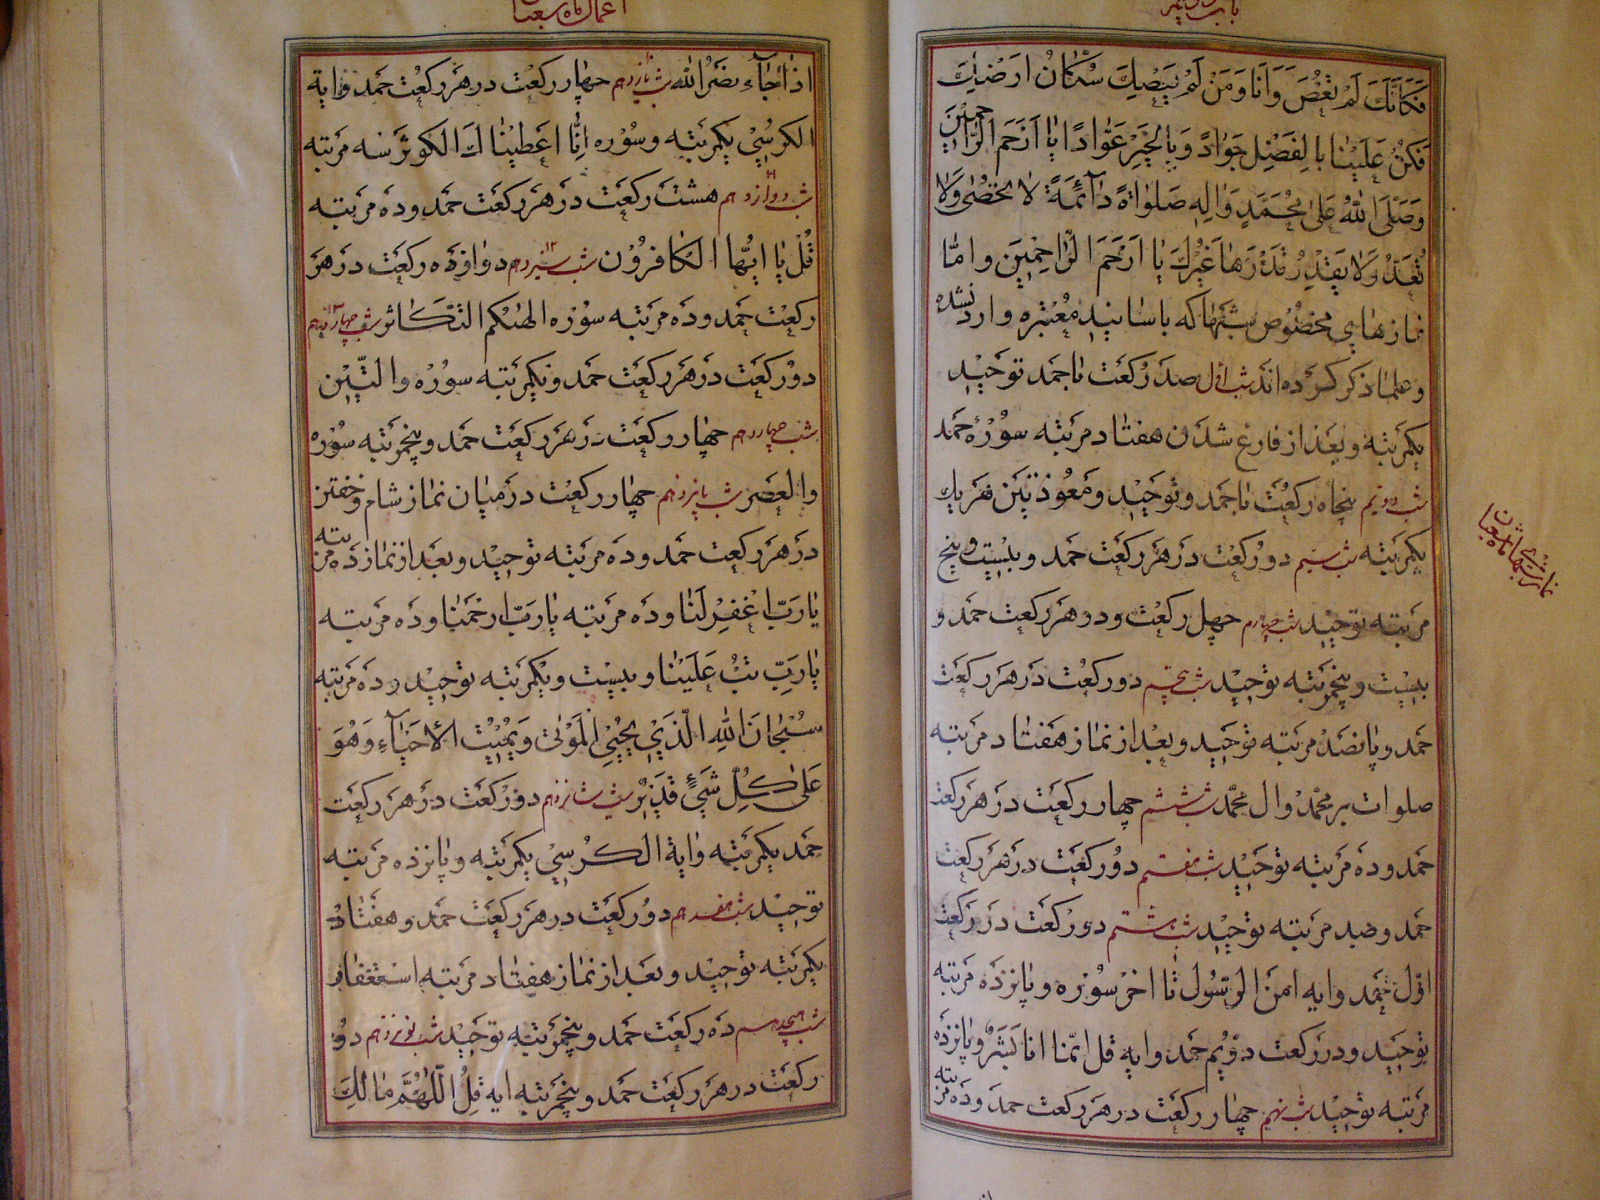 فکانک لم تعص وانا ومن لم یعصیک سکان ارضک
فکن علینا بالفضل جوادا وبالخیر عوادا یا ارحم الراحمین
وصلی الله علی محمد واله صلواة دائمة لا تحصی ولا
تعد ولا یقدر قدرها غیرک یا ارحم الراحمین واما
نمازهای مخصوص شبها که باسانید معتبره وارد نشده
وعلما ذکر کرده اند شب اول صد رکعت با حمد توحید
یکمرتبه وبعد از فارغ شدن هفتاد مرتبه سوره حمد
شب دویم پنجاه رکعت با حمد وتوحید ومعوذتین هر یک
یکمرتبه شب سیم دو رکعت در هر رکعت حمد وبیست وپنج
مرتبه توحید شب چهارم چهل رکعت و در هر رکعت حمد و
بیست وپنجمرتبه توحید شب پنجم دو رکعت در هر رکعت
حمد وپانصد مرتبه توحید وبعد از نماز هفتاد مرتبه
صلوات بر محمد وال محمد شب ششم چهار رکعت در هر رکعت
حمد وده مرتبه توحید شب هفتم دو رکعت در هر رکعت
حمد وصد مرتبه توحید شب هشتم دو رکعت در رکعت
اول حمد وایه امن الرسول تا اخر سوره وپانزده مرتبه
توحید ودر رکعت دویم حمد وایه قل انما انا بشر وپانزده
مرتبه توحید شب نهم چهار رکعت در هر رکعت حمد وده مرتبه
نماز شبهای ماه شعبان
اعمال ماه شعبان
اذا جاء نصر الله شب یازدهم چهار رکعت در هر رکعت حمد وایة
الکرسی یکمرتبه وسوره انا اعطیناک الکوثر سه مرتبه
شب دوازدهم هشت رکعت در هر رکعت حمد وده مرتبه
قل یا ایها الکافرون شب سیزدهم دو رکعت در هر
رکعت حمد وده مرتبه سوره الهیکم التکاثر شب چهاردهم
دو رکعت در هر رکعت حمد ویکمرتبه سوره والتین
شب چهاردهم چهار رکعت در هر رکعت حمد وپنجمرتبه سوره
والعصر شب پانزدهم چهار رکعت در میان نماز شام وخفتن
در هر رکعت حمد وده مرتبه توحید وبعد از نماز ده مرتبه
یا رب اغفر لنا وده مرتبه یا رب ارحمنا وده مرتبه
یا رب تب علینا وبیست ویکمرتبه توحید وده مرتبه
سبحان الله الذی یحیی الموتی ویمیت الاحیاء وهو
علی کل شیء قدیر شب شانزدهم دو رکعت در هر رکعت
حمد یکمرتبه وایة الکرسی یکمرتبه وپانزده مرتبه
توحید شب هفدهم دو رکعت در هر رکعت حمد وهفتاد
یکمرتبه توحید وبعد از نماز هفتاد مرتبه استغفار
شب هیجدهم ده رکعت حمد وپنجمرتبه توحید شب نوزدهم دو
رکعت در هر رکعت حمد وپنجمرتبه ایه قل اللهم مالک